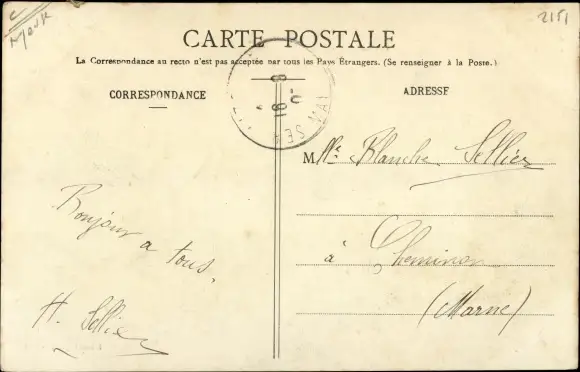 2151
CARTE POSTALE
La Correspondance au recto n'est pas acceptée par tous les Pays Étrangers. (Se renseigner à la Poste.)
CORRESPONDANCE
ADRESSE
Mlle Blanche Sellier
à Cheminon
(Marne)
Bonjour a tous.
H. Sellier